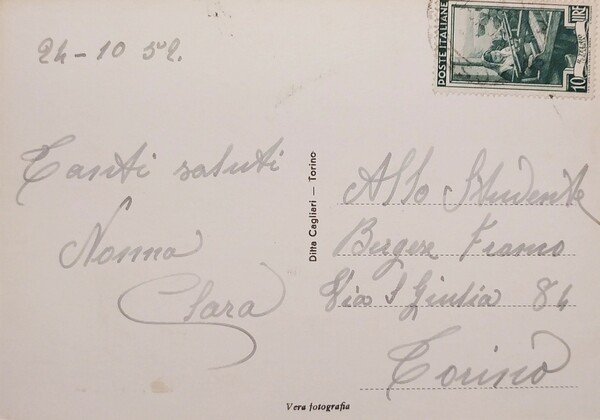 24-10 52.
POSTE ITALIANE
10 LIRE
Tanti saluti
Nonna
Clara
Ditta Cagliari — Torino
Allo Studente
Berger Franco
Via S Giulia 84
Torino
Vera fotografia